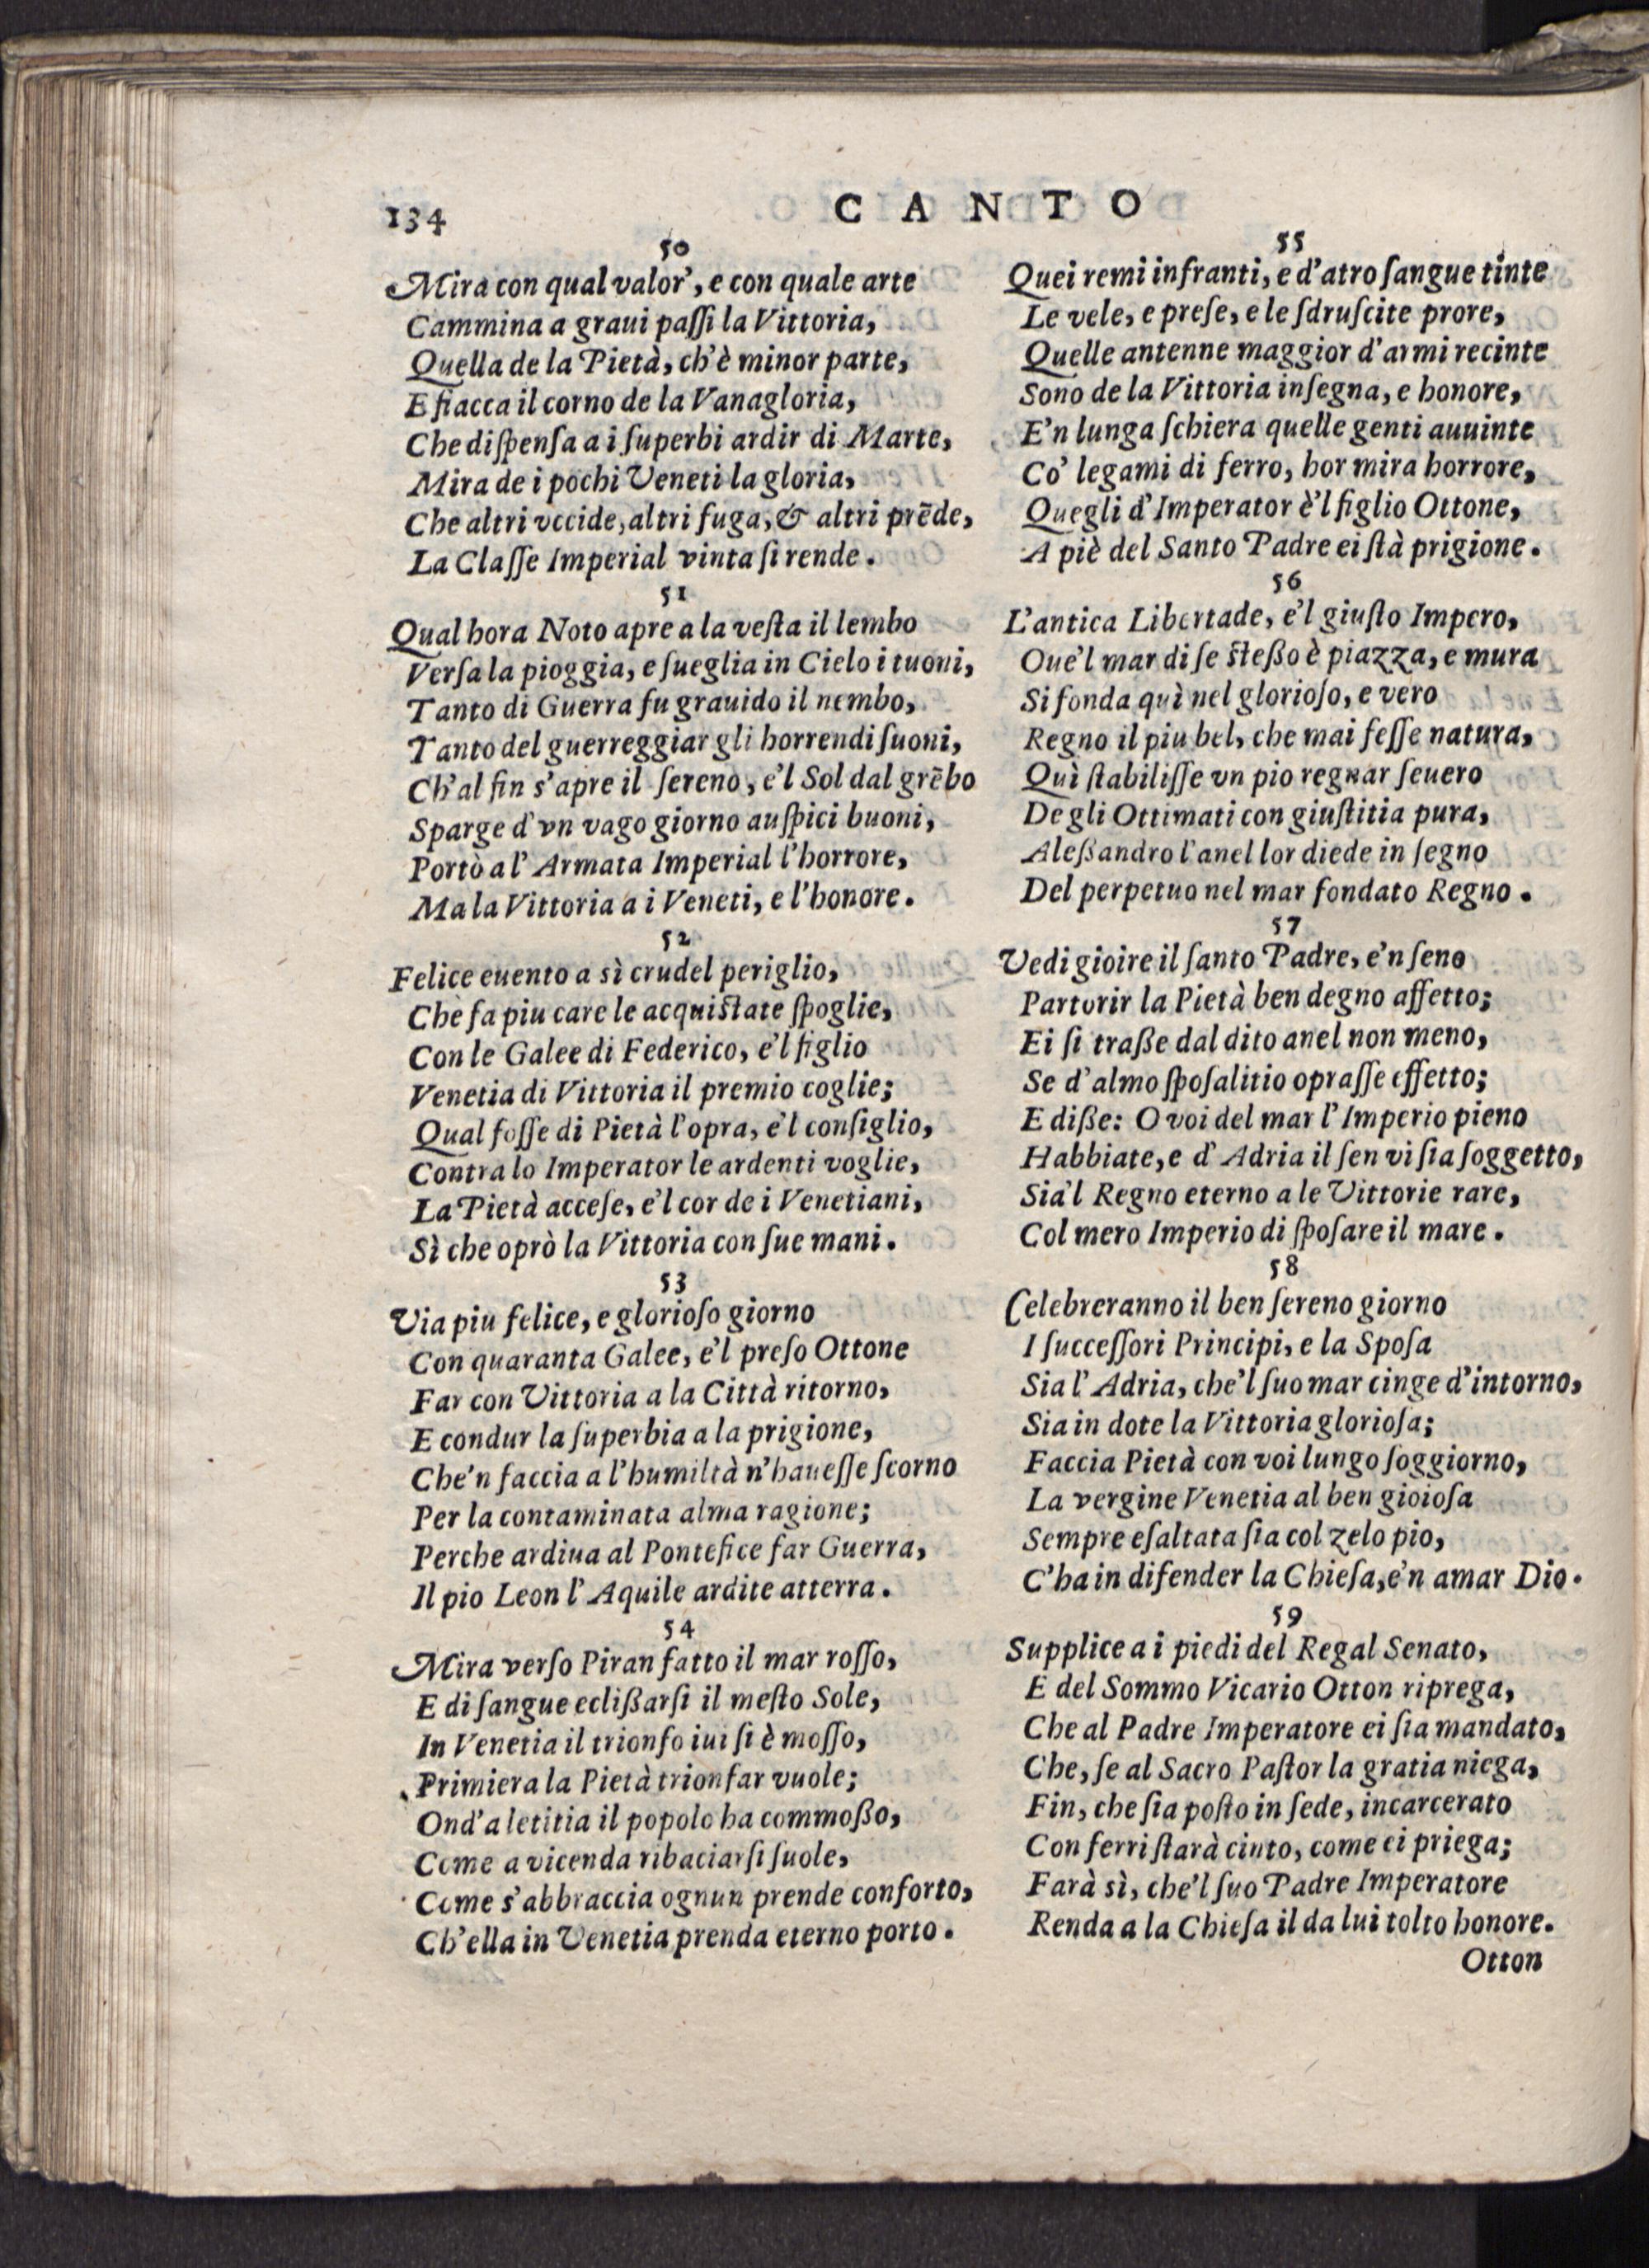 134
CANTO
50
Mira con qual valor', e con quale arte
Cammina a graui paſſi la Vittoria,
Quella de la Pietà, ch'è minor parte,
E fiacca il corno de la Vanagloria,
Che diſpenſa a i ſuperbi ardir di Marte,
Mira de i pochi Veneti la gloria,
Che altri vccide, altri fuga, & altri prẽde,
La Claſſe Imperial vinta ſi rende.
51
Qual hora Noto apre a la veſta il lembo
Verſa la pioggia, e ſueglia in Cielo i tuoni,
Tanto di Guerra fu grauido il nembo,
Tanto del guerreggiar gli horrendi ſuoni,
Ch'al fin s'apre il ſereno, e'l Sol dal grẽbo
Sparge d'vn vago giorno auſpici buoni,
Portò a l'Armata Imperial l'horrore,
Ma la Vittoria a i Veneti, e l'honore.
52
Felice euento a sì crudel periglio,
Che fa piu care le acquiſtate ſpoglie,
Con le Galee di Federico, e'l figlio
Venetia di Vittoria il premio coglie;
Qual foſſe di Pietà l'opra, e'l conſiglio,
Contra lo Imperator le ardenti voglie,
La Pietà acceſe, e'l cor de i Venetiani,
Sì che oprò la Vittoria con ſue mani.
53
Via piu felice, e glorioſo giorno
Con quaranta Galee, e'l preſo Ottone
Far con Vittoria a la Città ritorno,
E condur la ſuperbia a la prigione,
Che'n faccia a l'humiltà n'haueſſe ſcorno
Per la contaminata alma ragione;
Perche ardiua al Pontefice far Guerra,
Il pio Leon l'Aquile ardite atterra.
54
Mira verſo Piran fatto il mar roſſo,
E di ſangue eclißarſi il meſto Sole,
In Venetia il trionfo iui ſi è moſſo,
Primiera la Pietà trionfar vuole;
Ond'a letitia il popolo ha commoßo,
Come a vicenda ribaciarſi ſuole,
Come s'abbraccia ognun prende conforto,
Ch'ella in Venetia prenda eterno porto.
55
Quei remi infranti, e d'atro ſangue tinte
Le vele, e preſe, e le ſdruſcite prore,
Quelle antenne maggior d'armi recinte
Sono de la Vittoria inſegna, e honore,
E'n lunga ſchiera quelle genti auuinte
Co' legami di ferro, hor mira horrore,
Quegli d'Imperator è'l figlio Ottone,
A piè del Santo Padre ei ſtà prigione.
56
L'antica Libertade, e'l giuſto Impero,
Oue'l mar di ſe ſteßo è piazza, e mura
Si fonda quì nel glorioſo, e vero
Regno il piu bel, che mai feſſe natura,
Quì ſtabiliſſe vn pio regnar ſeuero
De gli Ottimati con giuſtitia pura,
Aleßandro l'anel lor diede in ſegno
Del perpetuo nel mar fondato Regno.
57
Vedi gioire il ſanto Padre, e'n ſeno
Partorir la Pietà ben degno affetto;
Ei ſi traße dal dito anel non meno,
Se d'almo ſpoſalitio opraſſe effetto;
E diße: O voi del mar l'Imperio pieno
Habbiate, e d'Adria il ſen vi ſia ſoggetto,
Sia'l Regno eterno a le Vittorie rare,
Col mero Imperio di ſpoſare il mare.
58
Celebreranno il ben ſereno giorno
I ſucceſſori Principi, e la Spoſa
Sia l'Adria, che'l ſuo mar cinge d'intorno,
Sia in dote la Vittoria glorioſa;
Faccia Pietà con voi lungo ſoggiorno,
La vergine Venetia al ben gioioſa
Sempre eſaltata ſia col zelo pio,
C'ha in difender la Chieſa, e'n amar Dio.
59
Supplice a i piedi del Regal Senato,
E del Sommo Vicario Otton riprega,
Che al Padre Imperatore ei ſia mandato,
Che, ſe al Sacro Paſtor la gratia niega,
Fin, che ſia poſto in ſede, incarcerato
Con ferri ſtarà cinto, come ei priega;
Farà sì, che'l ſuo Padre Imperatore
Renda a la Chieſa il da lui tolto honore.
Otton